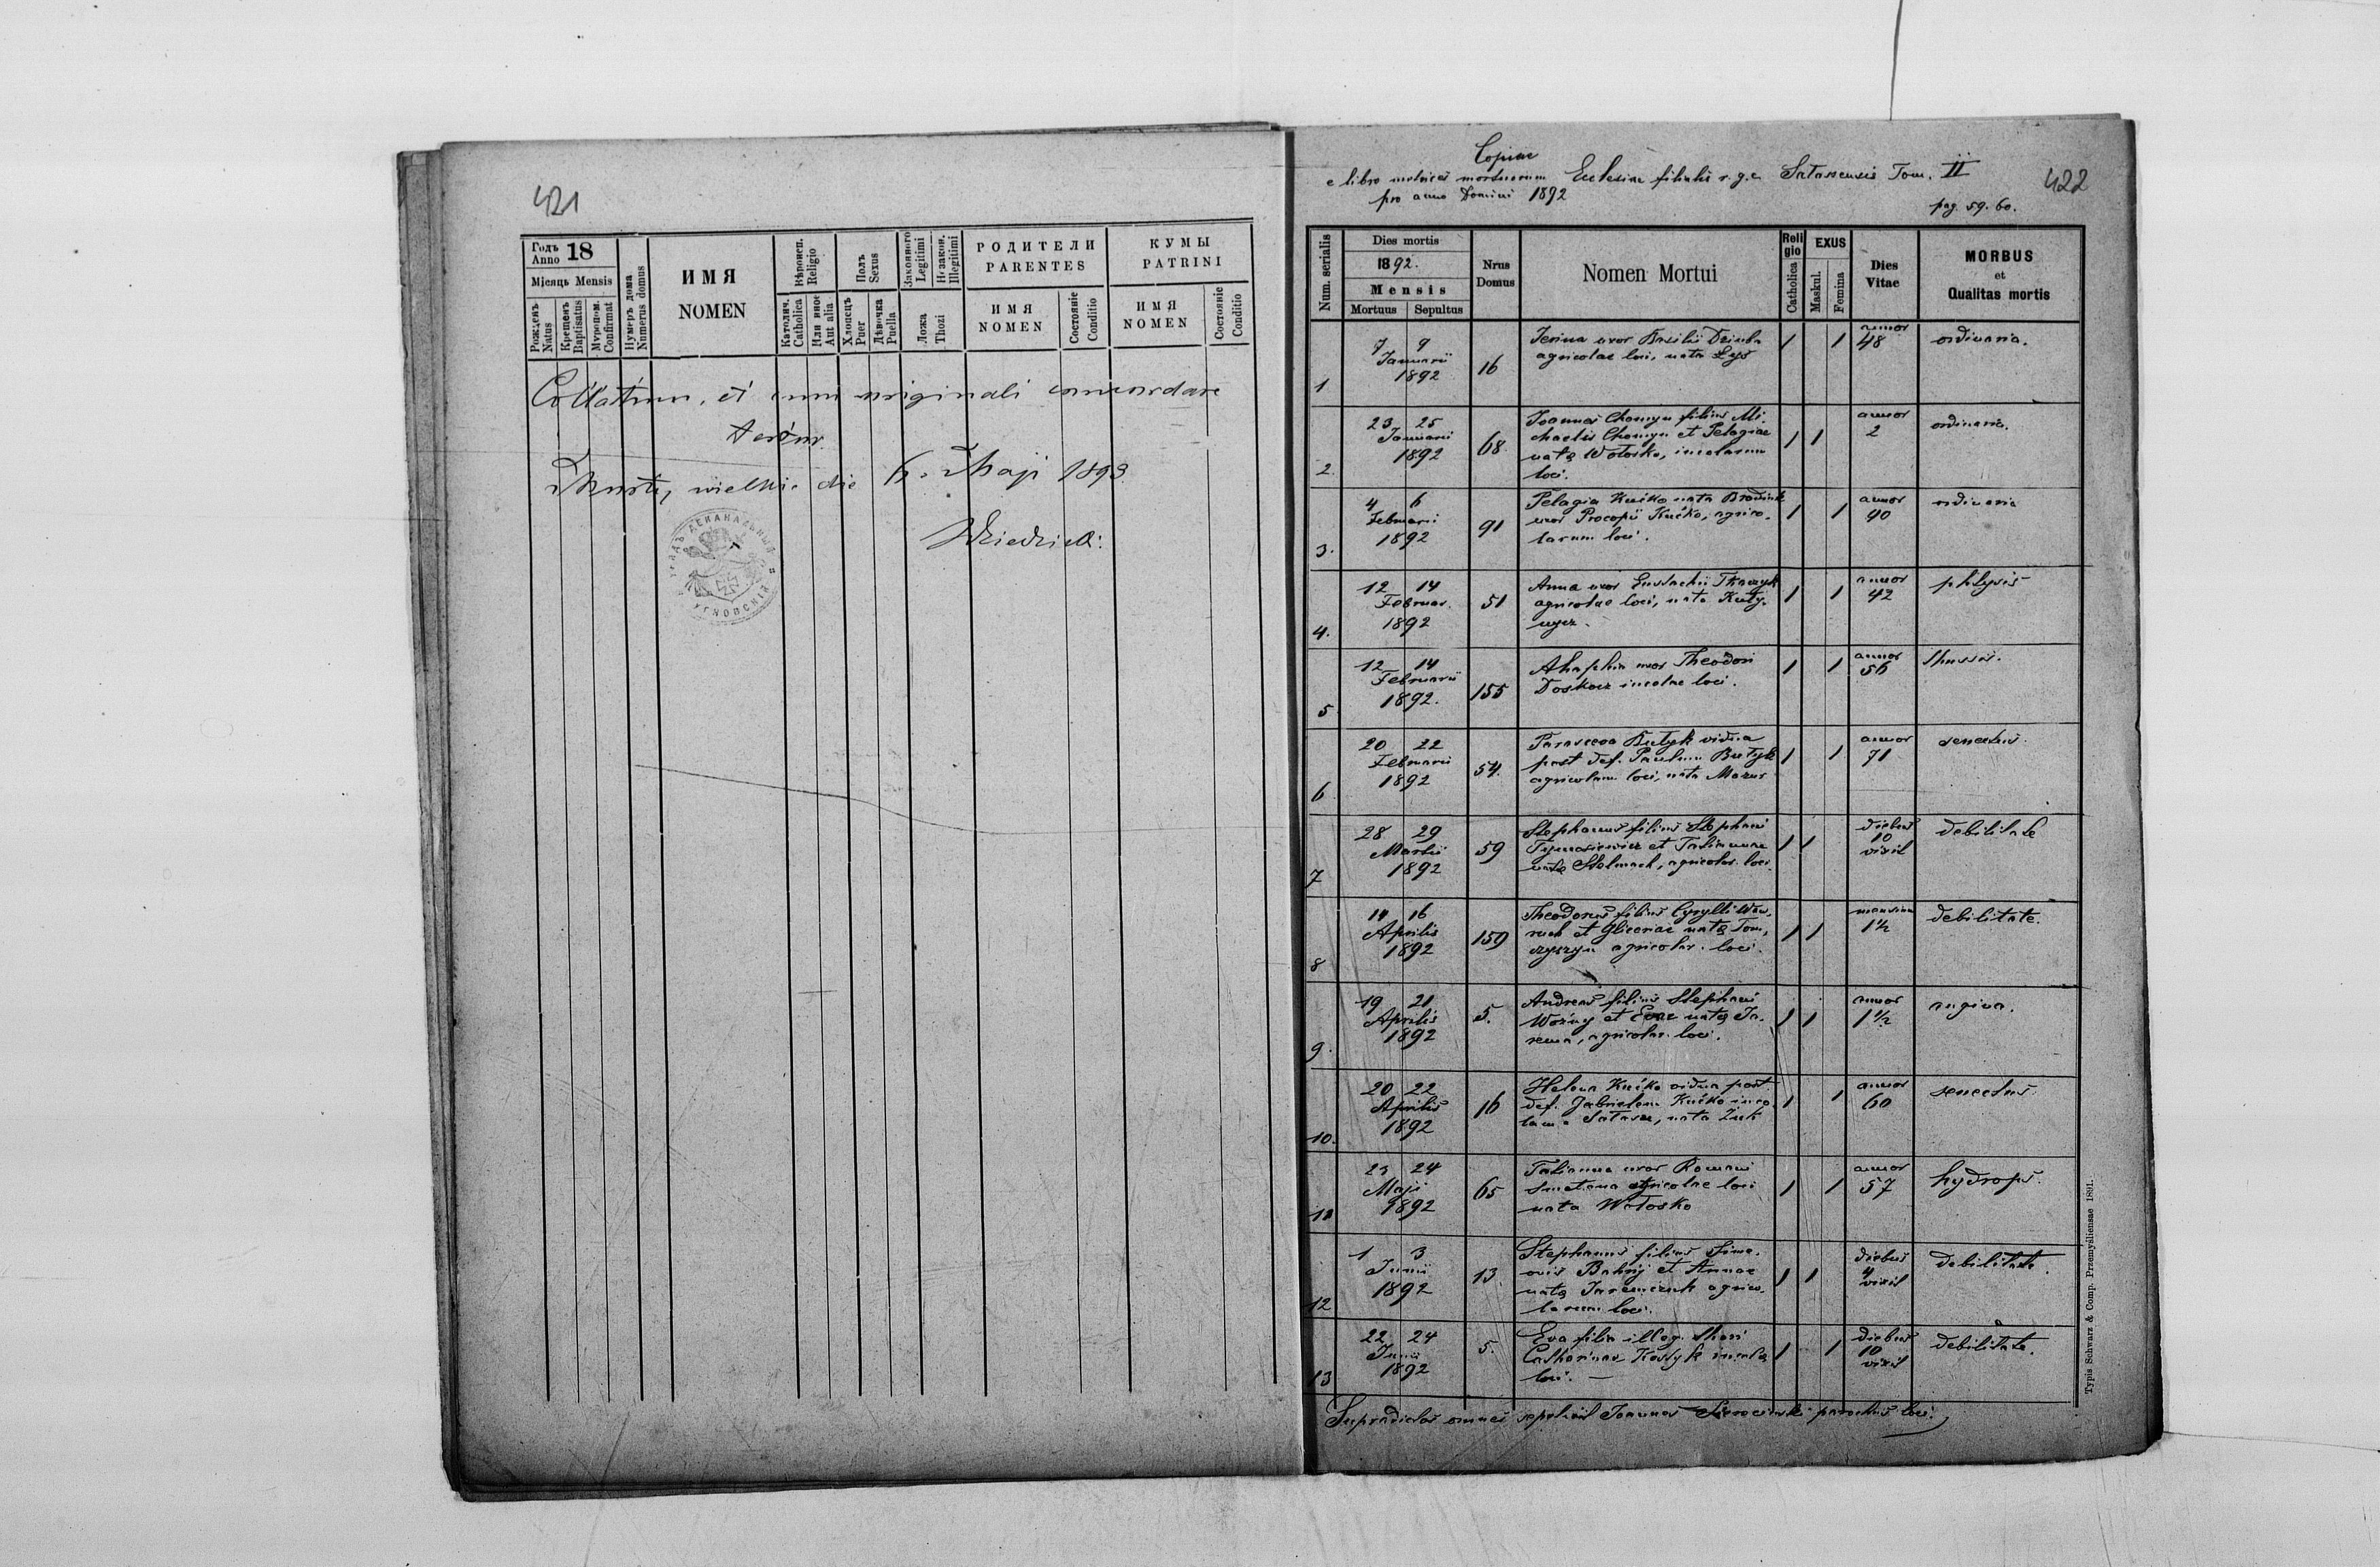 421
Годъ Anno 18
Місяць Mensis
Рожденъ Natus
Крещенъ Baptisatus
Мѵропом. Confirmat
Нумеръ дома Numerus domus
ИМЯ
NOMEN
Вѣроисп. Religio
Католич. Catholica
Или иное Aut alia
Полъ Sexus
Хлопецъ Puer
Дѣвочка Puella
Законного Legitimi
Незакон. Illegitimi
Ложа Thori
РОДИТЕЛИ
PARENTES
ИМЯ
NOMEN
Состояніе Conditio
КУМЫ
PATRINI
ИМЯ
NOMEN
Состояніе Conditio
Collatum, et cum originali concordare
testor
wielkie die 6. Maji 1893
Copiae
e libro metrices mortuorum Ecclesiae filialis r.g.c. Tom. II
pro anno Domini 1892
pag. 59. 60.
422
Num. serialis
Dies mortis
1892.
Mensis
Mortuus Sepultus
Nrus Domus
Nomen Mortui
Religio
Catholica
EXUS
Maskul.
Femina
Dies Vitae
MORBUS
et
Qualitas mortis
1 7 9 Januarii 1892 16
uxor Basilii Dziuba
agricolae loci, nata Łyś
1 1 annor 48 ordinaria.
2. 23 25 Januarii 1892 68.
Joannes Chomyn filius Mi-
chaelis Chomyn et Pelagiae
nata Wołoszko, incolarum
loci.
1 1 annor 2 ordinaria.
3. 4 6 Februarii 1892 91
Pelagia Kućko nata
uxor Procopii Kućko, agrico-
larum loci.
1 1 annor 40 ordinaria
4. 12 14 Februar. 1892 51
Anna uxor Eustachii Tkaczyk
agricolae loci, nata
1 1 annor 42 phtysis
5 12 14 Februarii 1892. 155
Ahaphia uxor Theodori
Doskocz incolae loci.
1 1 annor 56 thussis.
6 20 22 Februarii 1892 54.
Parasceva Butyk vidua
post def. Paulum Butyk
agricolam loci, nata Mazur
1 1 annor 71 senectus.
7 28 29 Martii 1892 59
Stephanus filius Stephani
Tymosiewicz et Tatiannae
nata Stelmach, agricolar. loci.
1 1 diebus 10 vixit debilitate
8 14 16 Aprilis 1892 159
Theodorus filius Cyrylli
et Gliceriae nata Tom-
czyszyn agricolar. loci.
1 1 mensium 1½ debilitate.
9. 19 21 Aprilis 1892 5.
Andreas filius Stephani
Woźny et Evae nata Ja-
rema, agricolar. loci.
1 1 annor 1½ angina.
10. 20 22 Aprilis 1892 16
Helena Kućko vidua post
def. Gabrielem Kućko inco-
lam, nata Żuk
1 1 annor 60 senectus.
11 23 24 Maji 1892 65
Tatianna uxor Romani
Smetana agricolae loci
nata Wołoszko
1 1 annor 57 hydrops.
12 1 3 Junii 1892 13.
Stephanus filius Sime-
onis et Annae
nata Jaremczuk agrico-
larum loci.
1 1 diebus 4 vixit debilitate.
13 22 24 Junii 1892 5.
Eva filia illeg. thori
Catharinae Kostyk incola
loci. —
1 1 diebus 10 vixit debilitate.
Supradictos omnes sepelivit Joannes parochus loci.
Typis Schwarz & Comp. Przemyśliensae 1891.